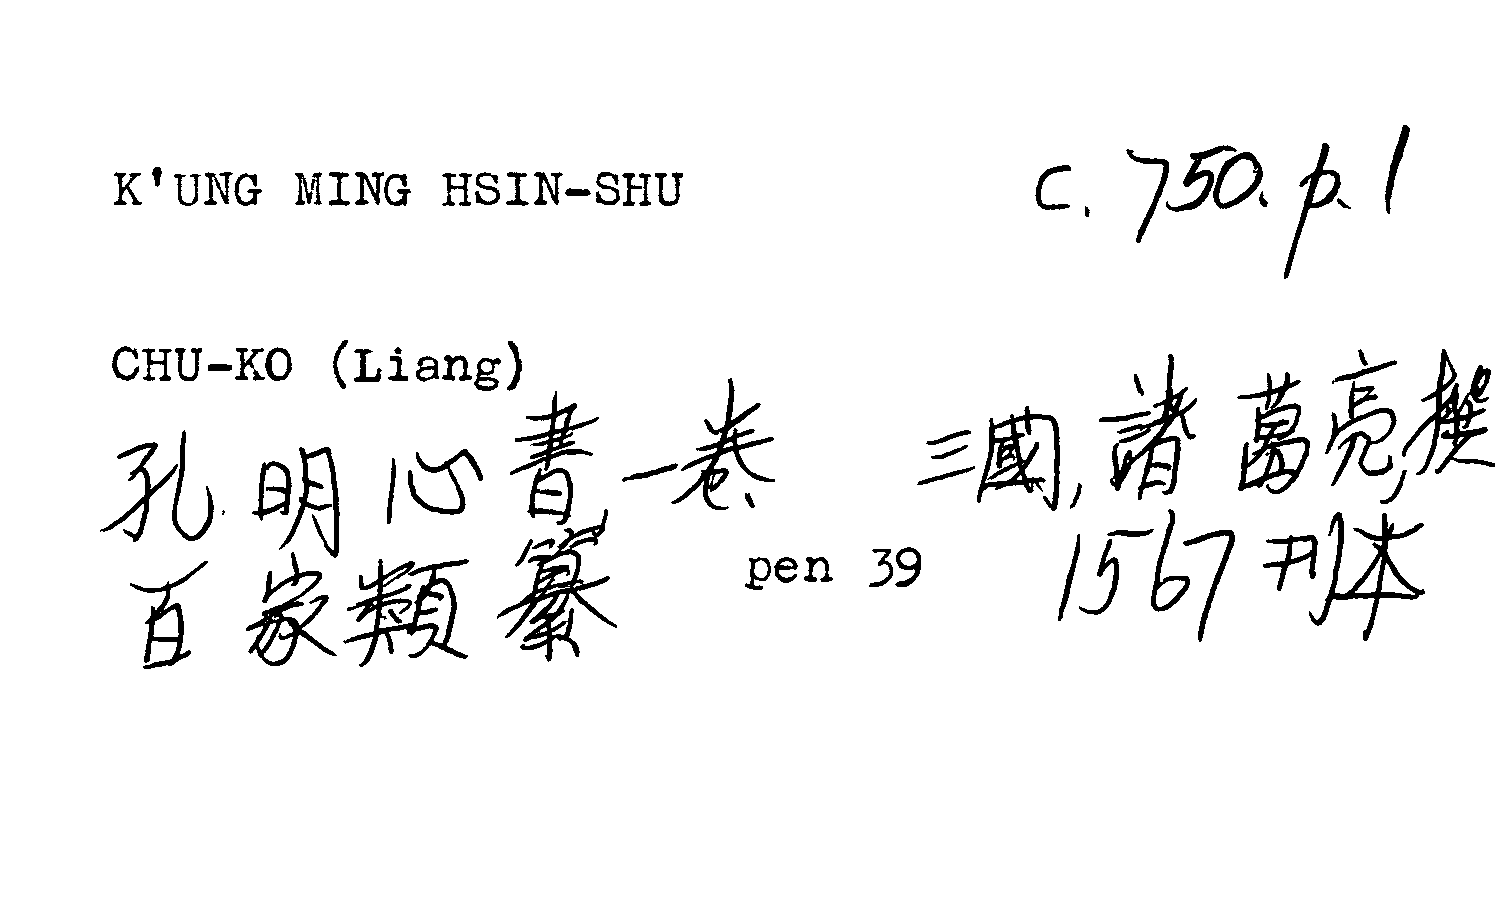 K'UNG MING HSIN-SHU c. 750. p. 1
CHU-KO (Liang)
孔明心書一卷 三國, 諸葛亮, 撰
百家類纂 pen 39 1567刊本